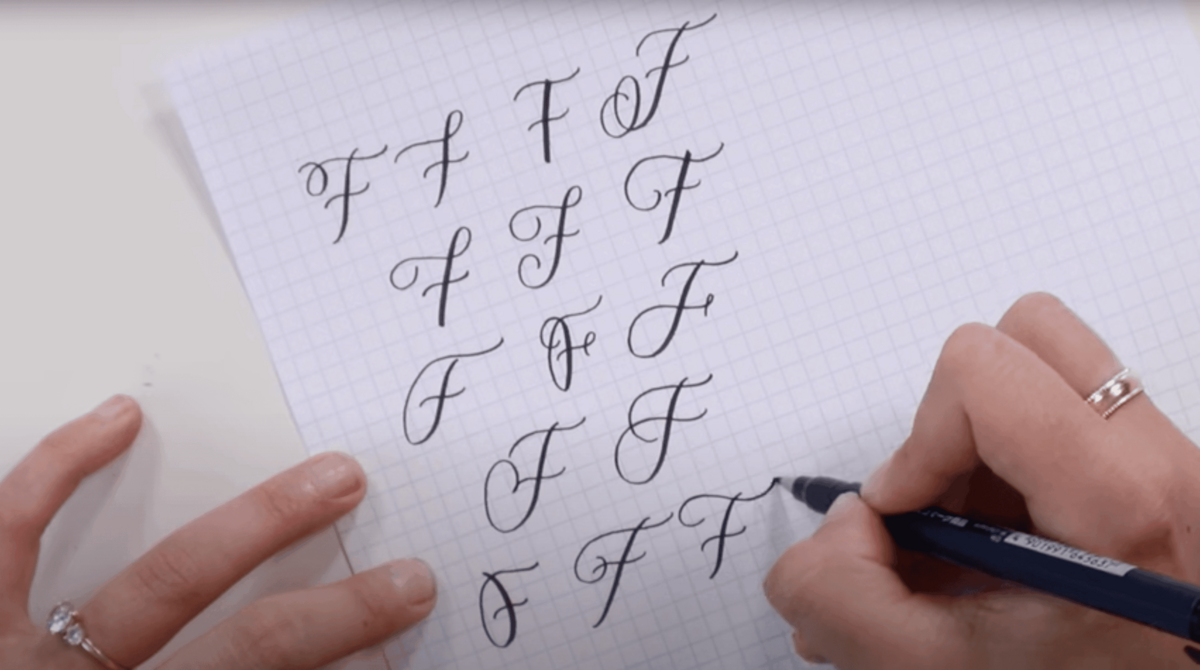 F F F F
F F F
F F F
F F
F F F